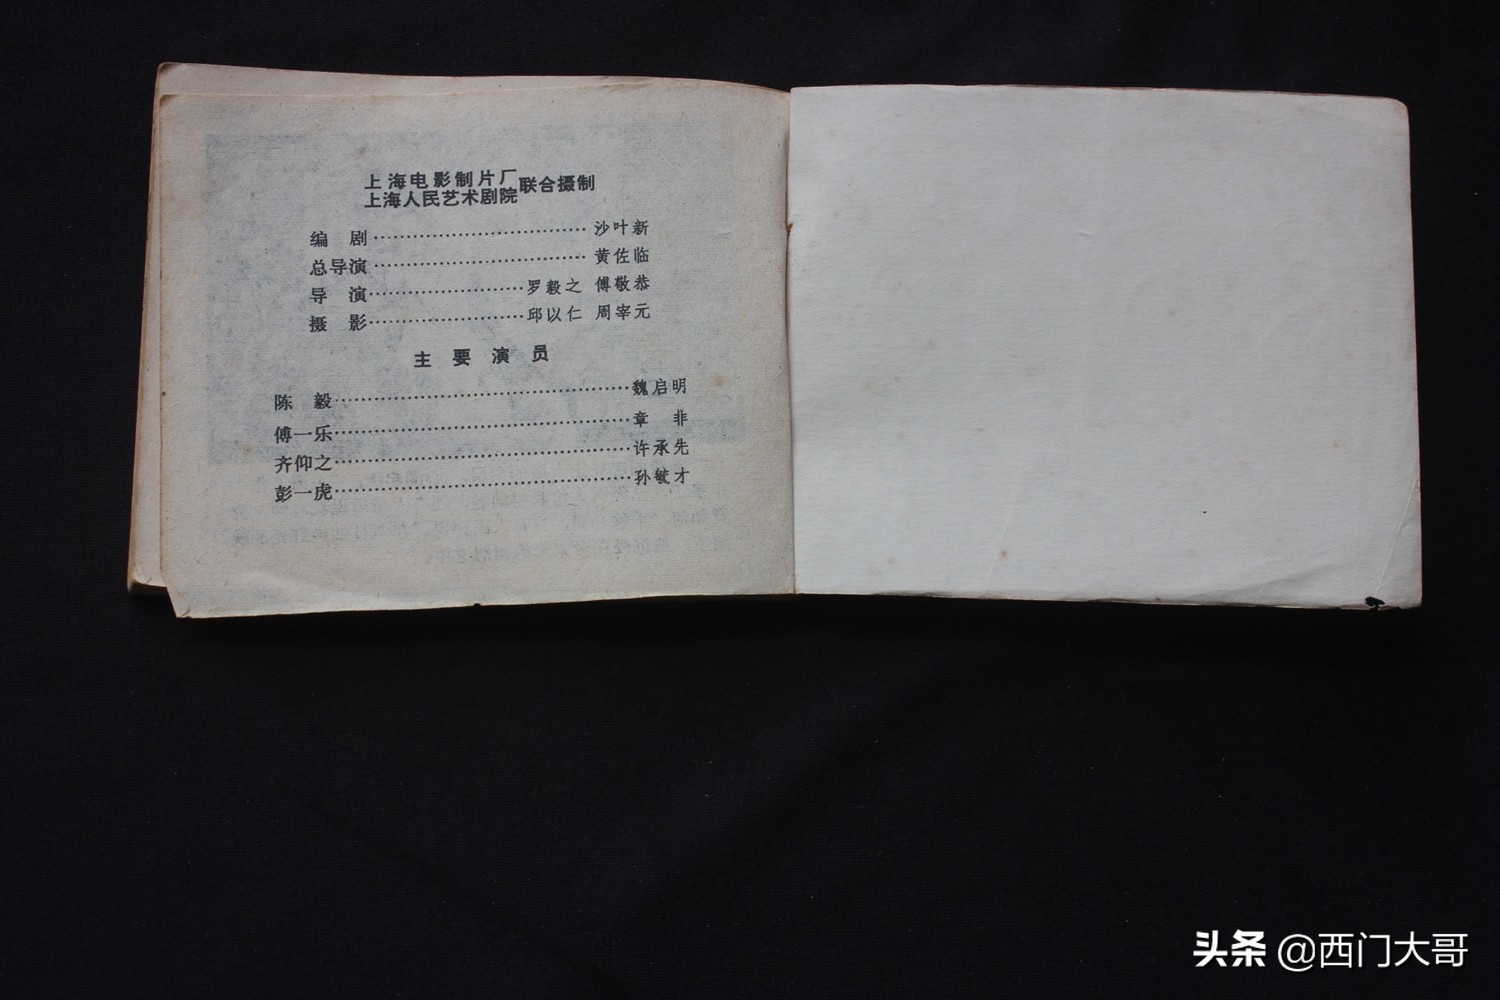 上海电影制片厂
上海人民艺术剧院 联合摄制
编 剧……………………………沙叶新
总导演……………………………黄佐临
导 演……………………罗毅之 傅敬恭
摄 影……………………邱以仁 周宰元
主 要 演 员
陈 毅………………………………………魏启明
傅一乐………………………………………章 非
齐仰之………………………………………许承先
彭一虎………………………………………孙敏才
头条 @西门大哥